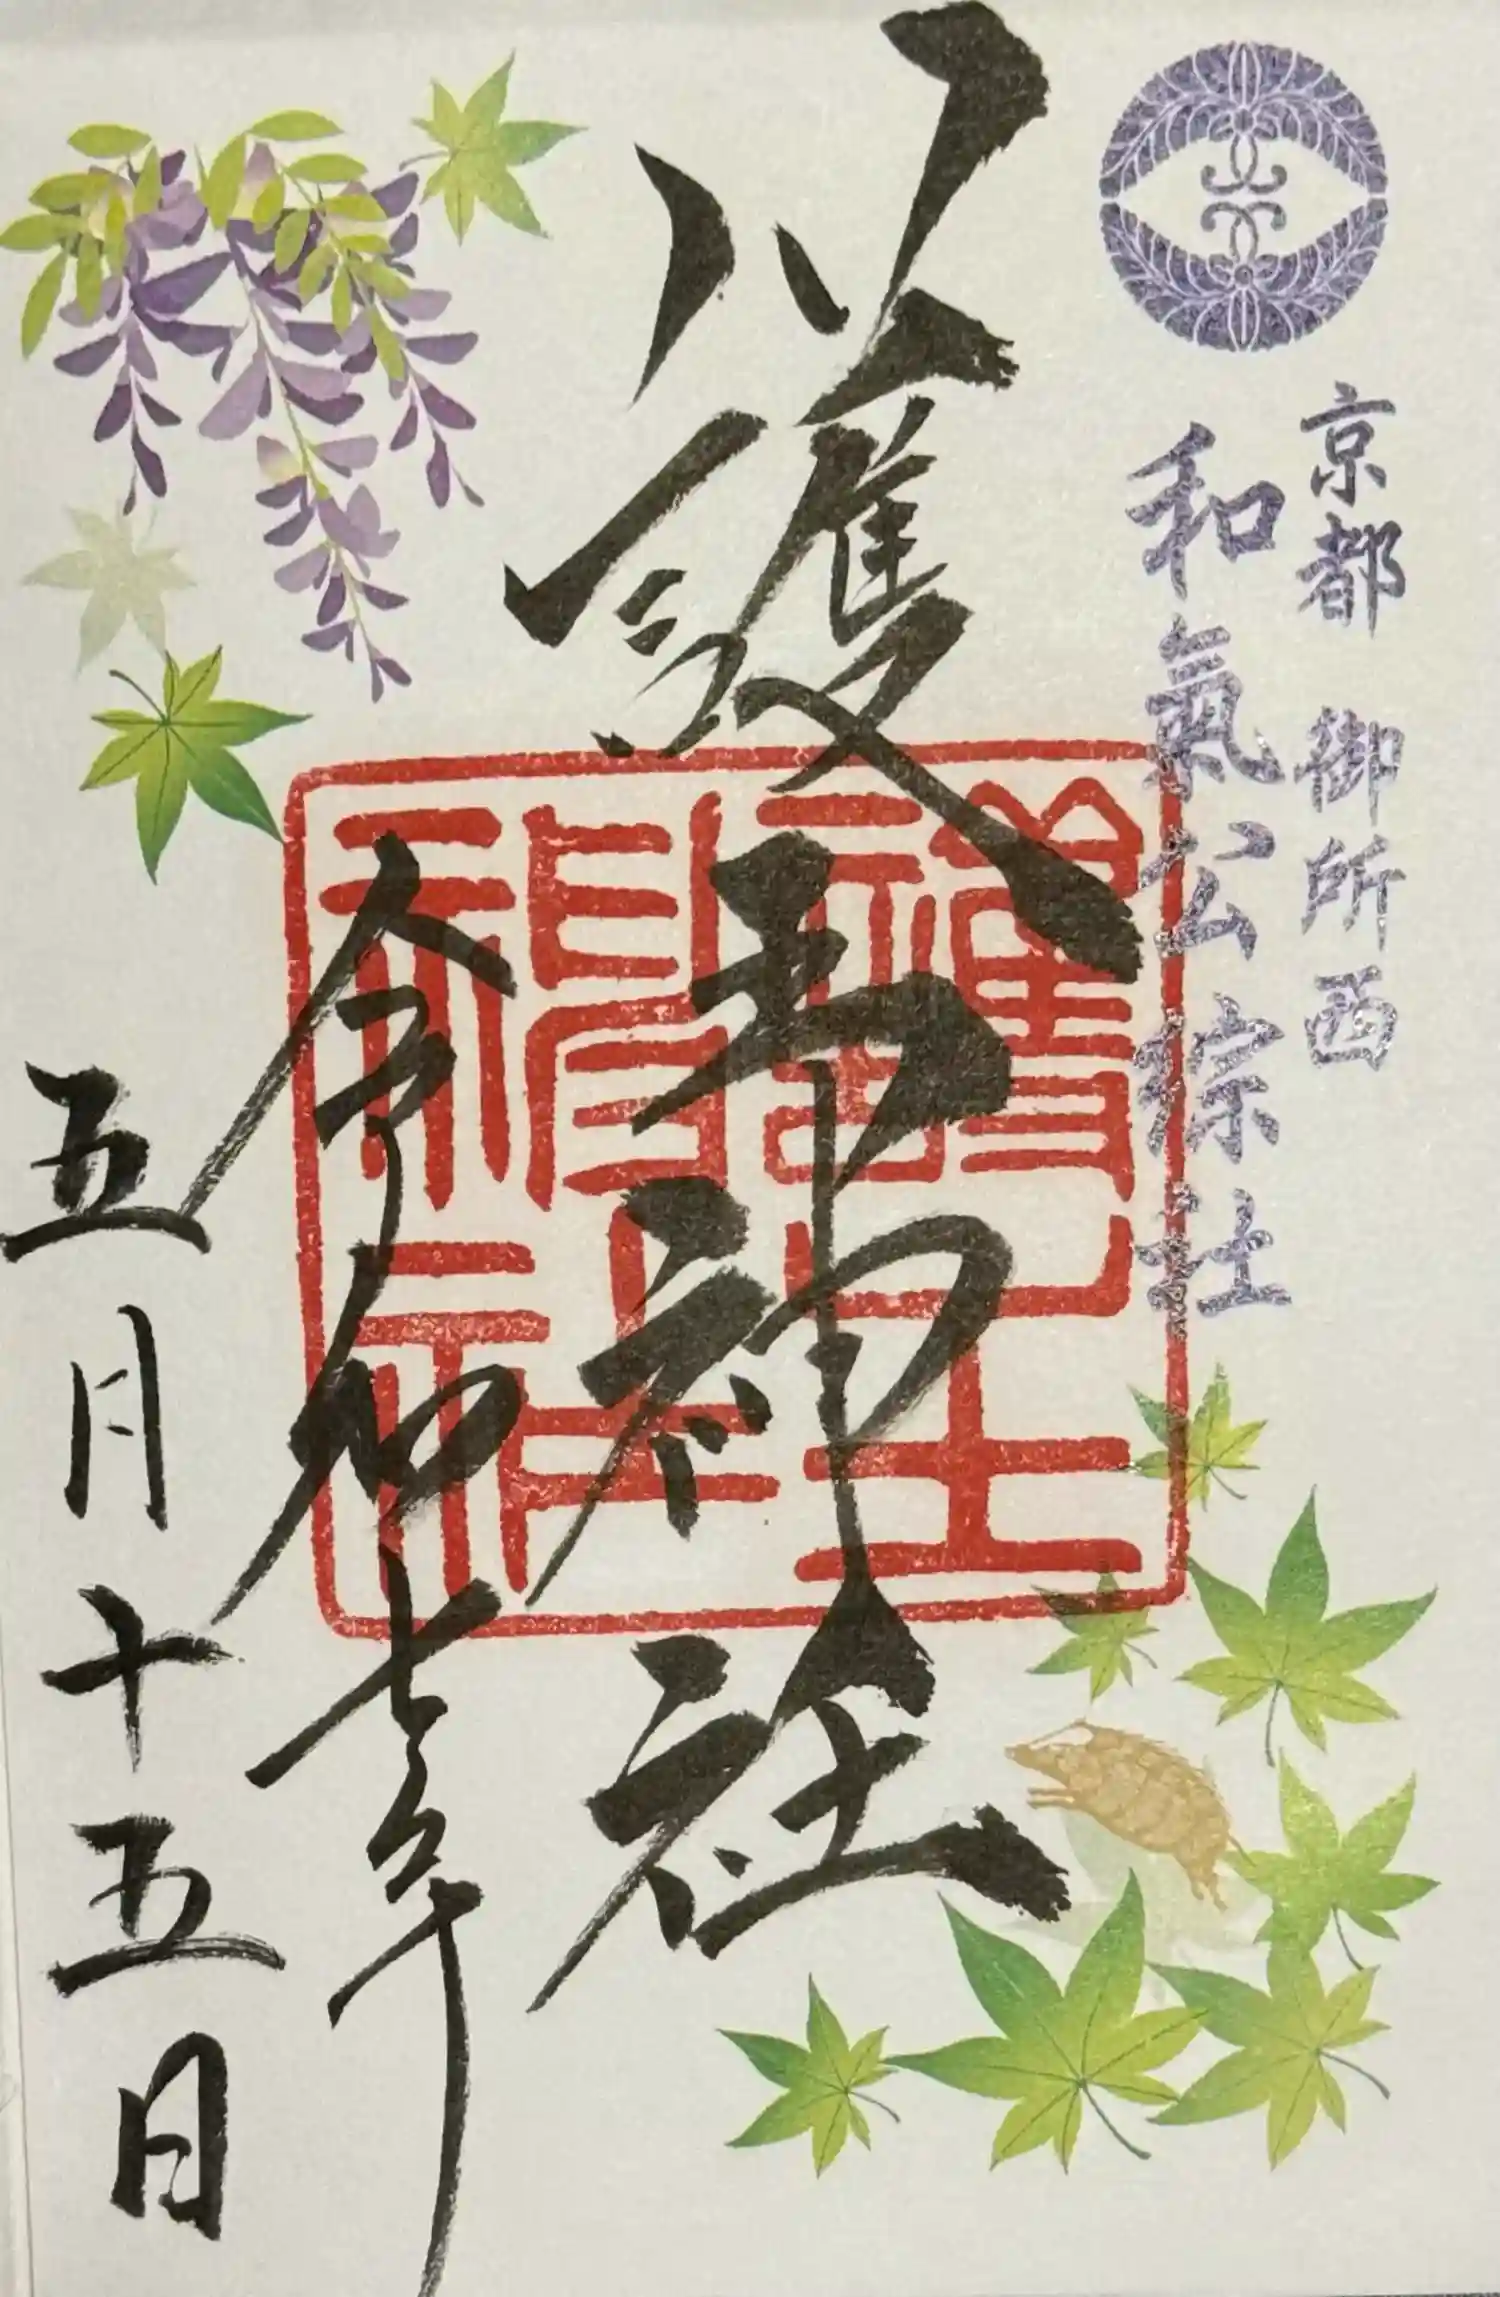 京都 御所西
和氣公綜社
護王神社
令和七年
五月十五日
護王神社